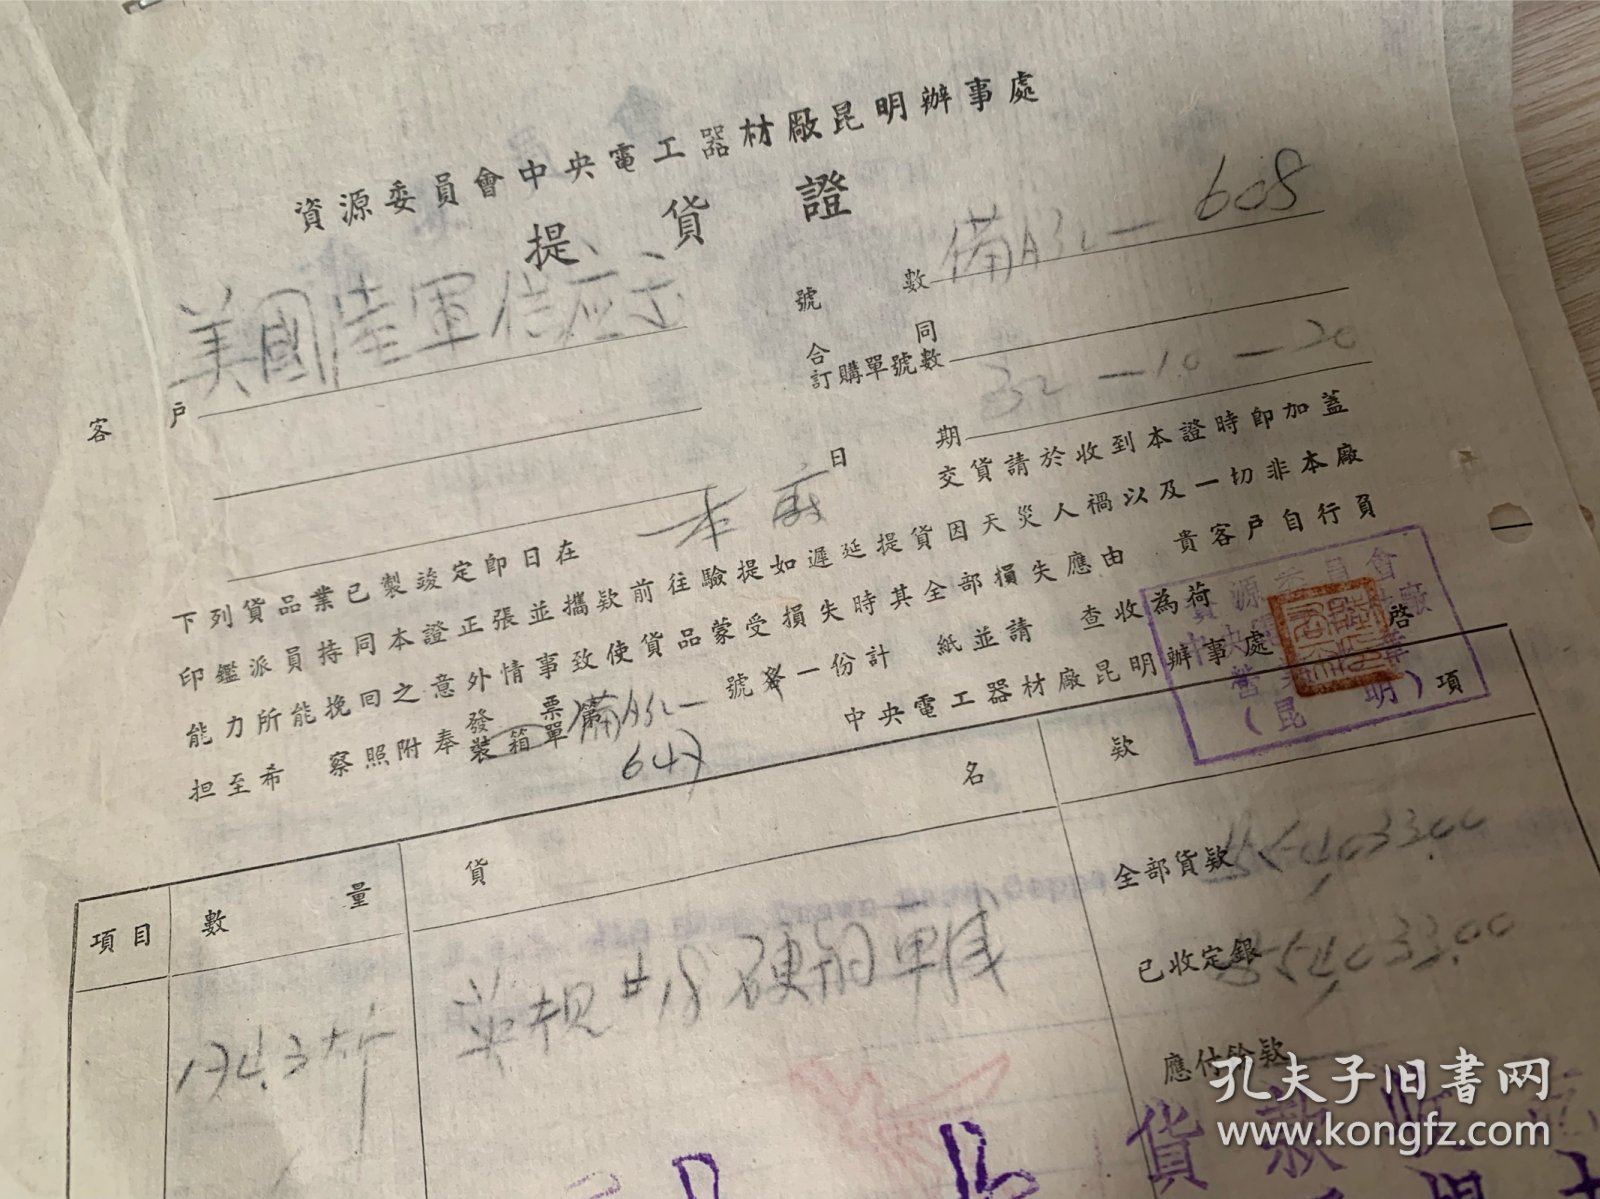 資源委員會中央電工器材廠昆明辦事處
提貨證
客戶 美國陸軍供应部
號數 備A32-608
合同
訂購單號數
日期 32-10-20
下列貨品業已製竣定即日在 本廠 交貨請於收到本證時即加蓋
印鑑派員持同本證正張並攜欵前往驗提如遲延提貨因天災人禍以及一切非本廠
能力所能挽回之意外情事致使貨品蒙受損失時其全部損失應由 貴客戶自行負
担至希 察照附奉發票裝箱單第 備A32-647 號 一份計 紙並請 查收為荷
中央電工器材廠昆明辦事處 啓
資源委員會
中央
(昆明)
項目 數量 貨名 欵項
134.3 公斤 英規#18硬銅單線
全部貨欵
已收定銀
應付餘欵
貨款
孔夫子旧书网
www.kongfz.com